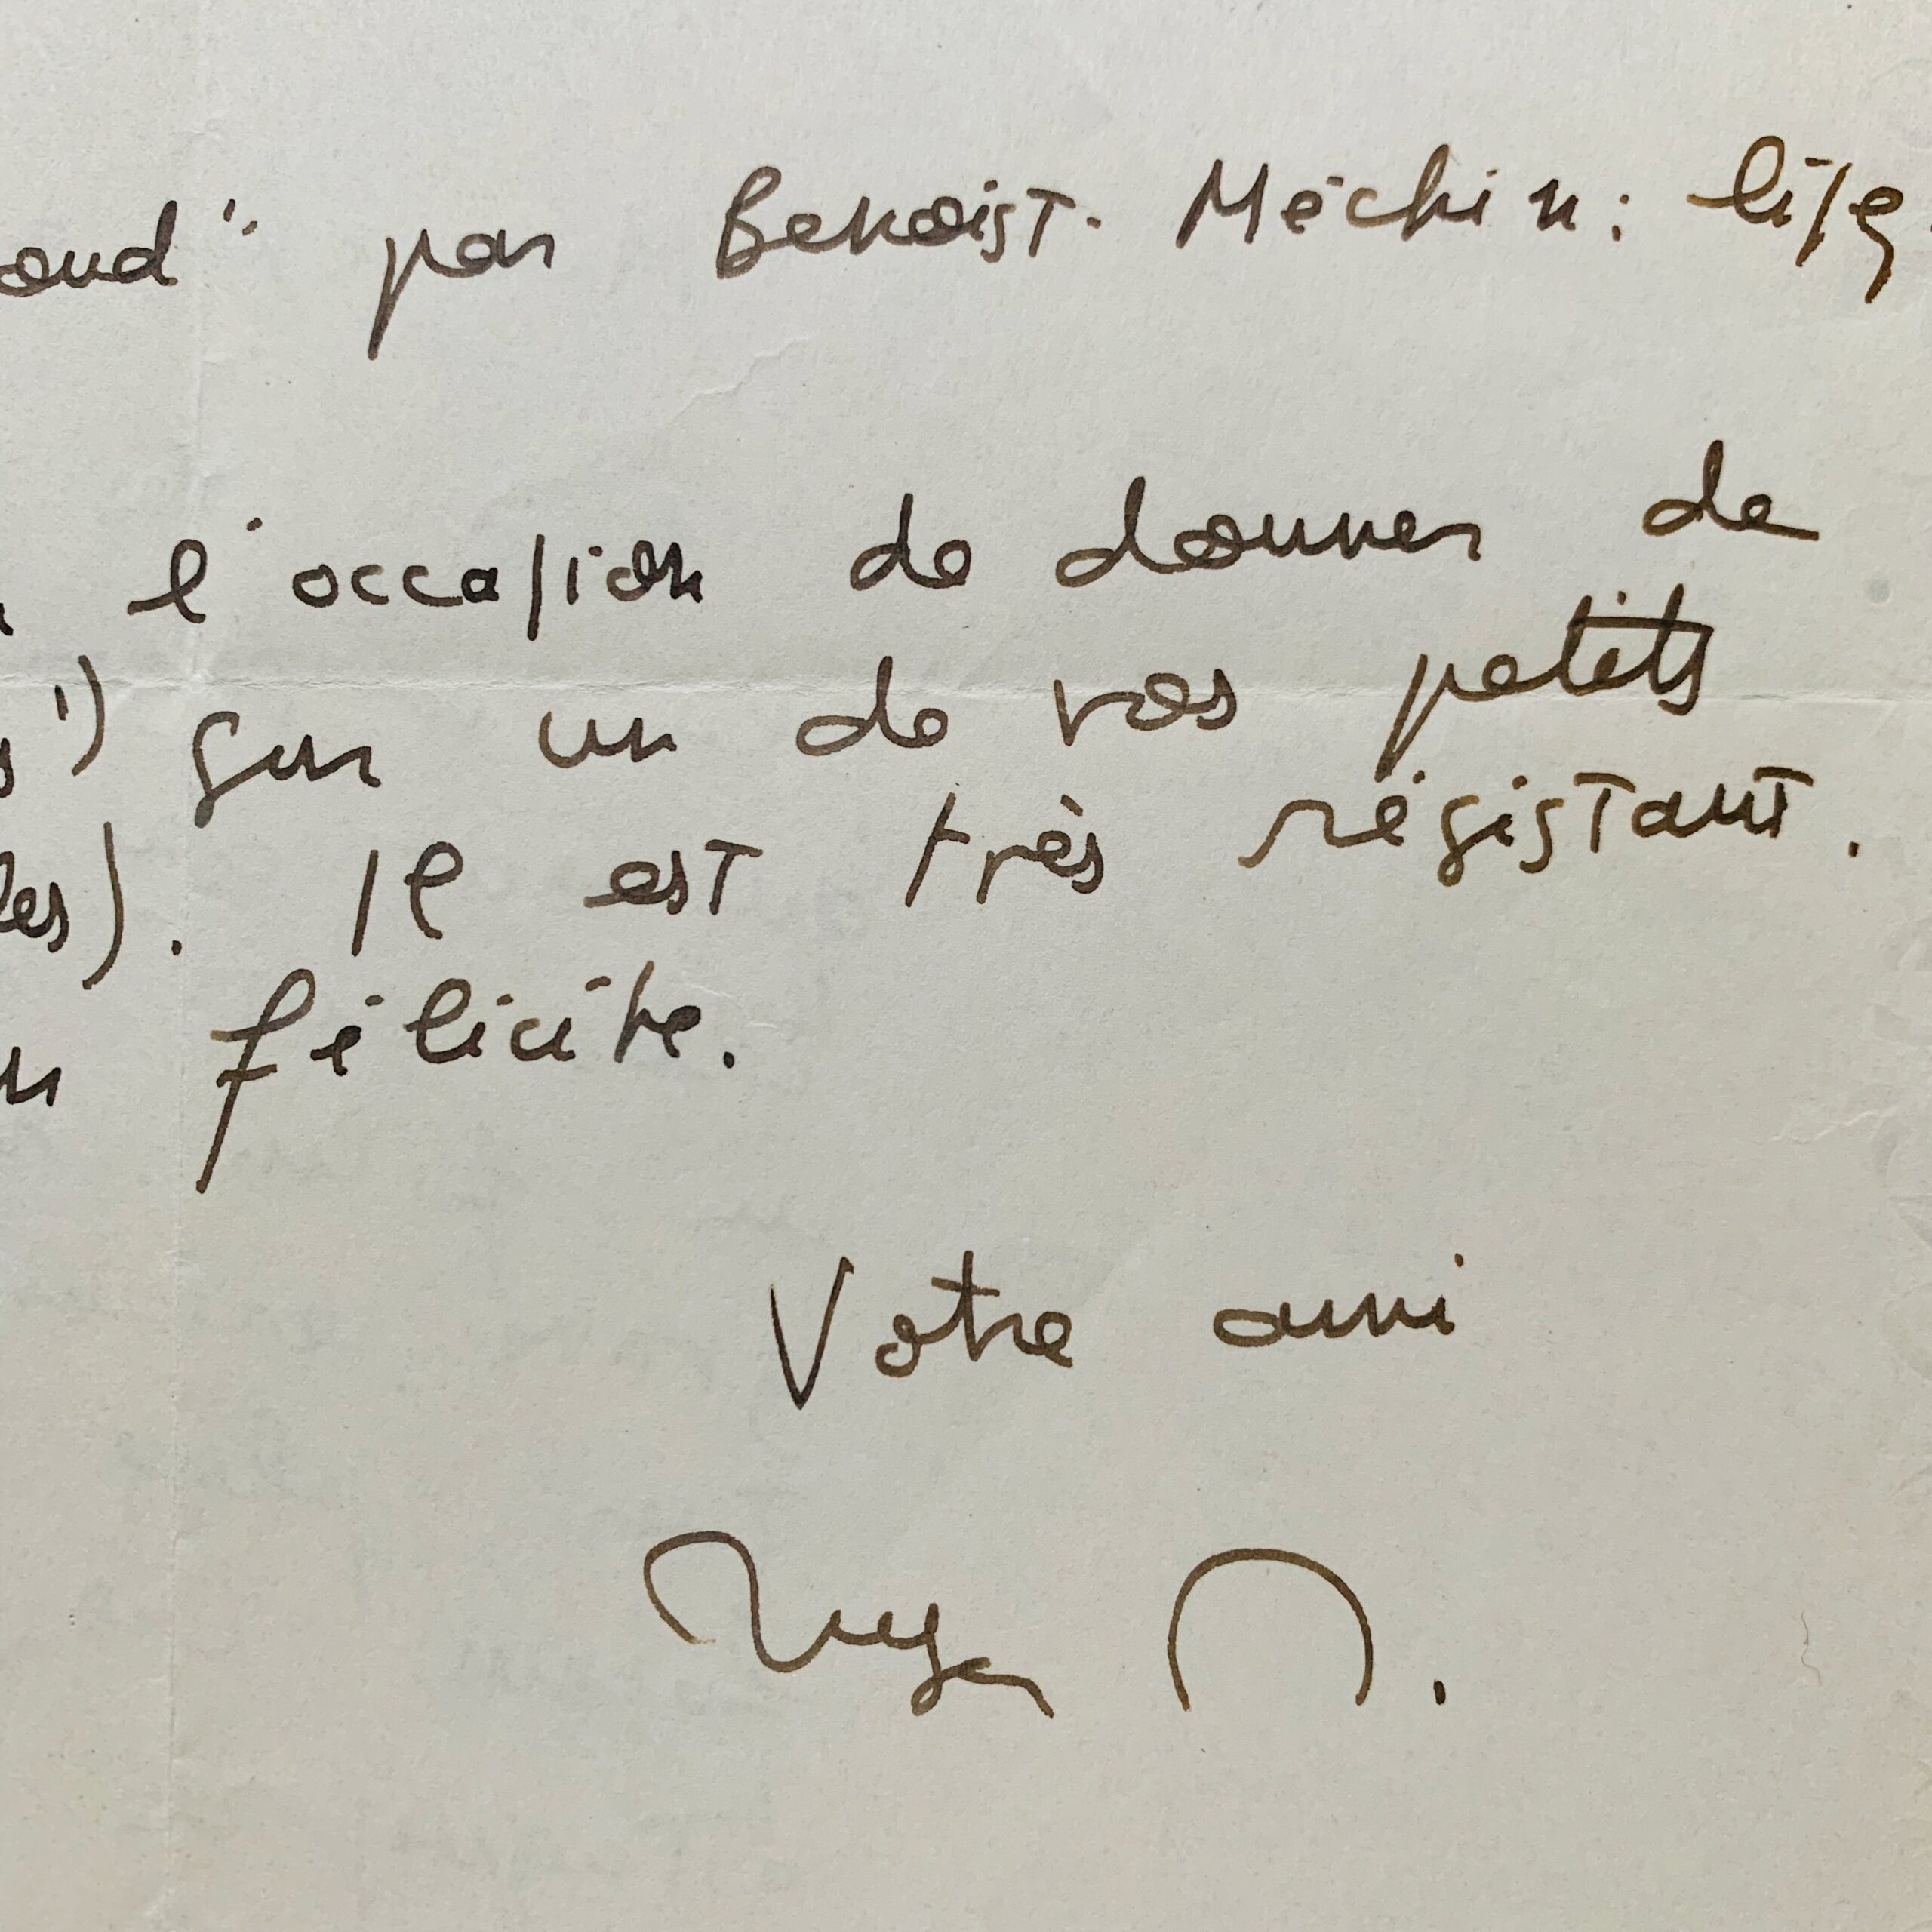 oud" par Benoist-Méchin: lisez
l'occasion de donner de
s") sur un de vos petits
les). Il est très résistant.
félicite.
Votre ami